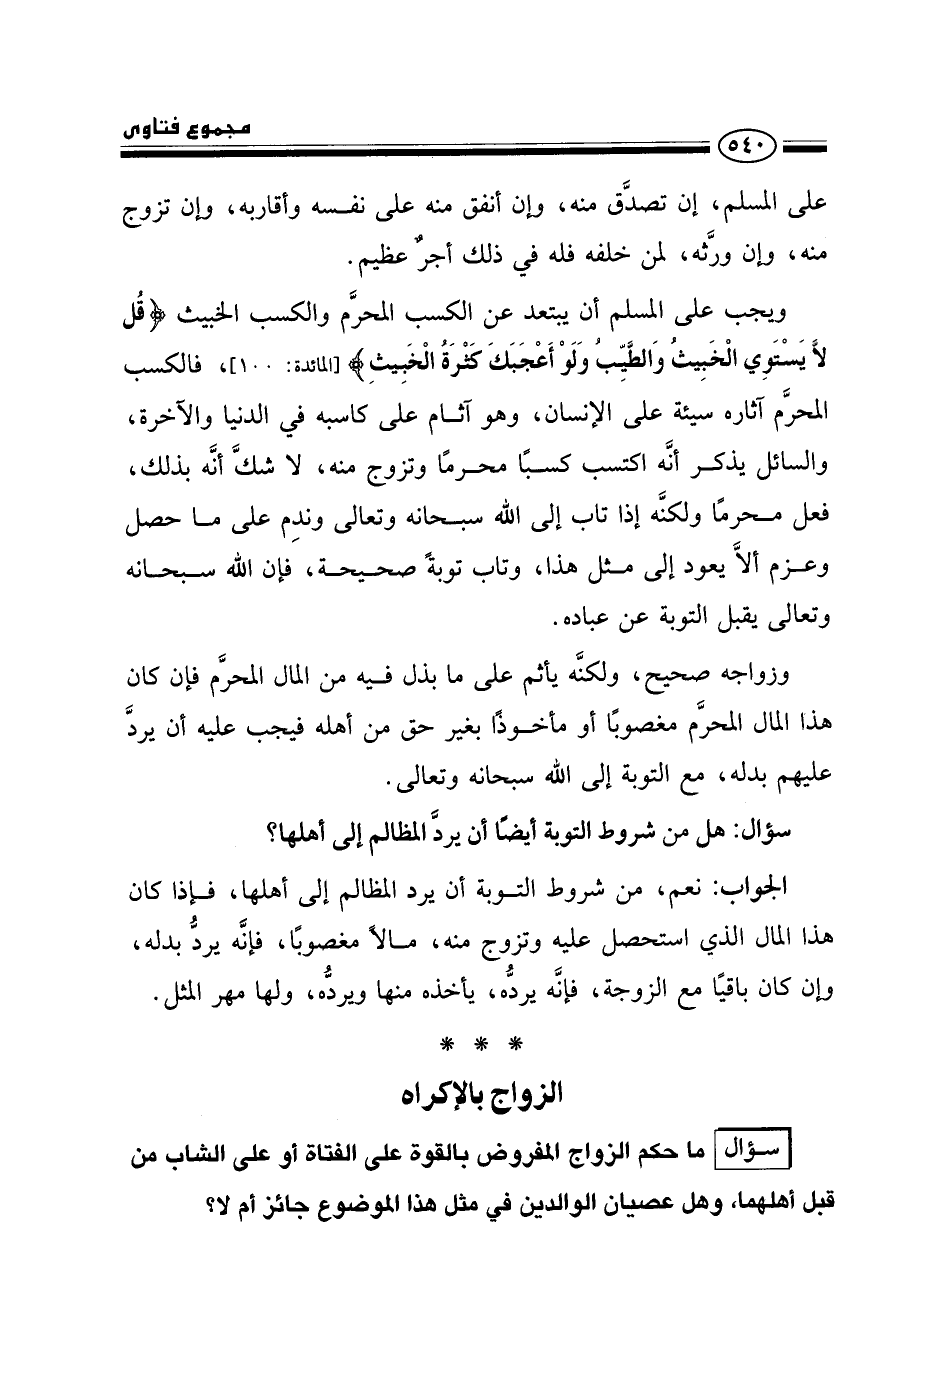 مجموع فتاوى
٥٤٠
على المسلم، إن تصدَّق منه، وإن أنفق منه على نفسه وأقاربه، وإن تزوج
منه، وإن ورَّثه، لمن خلفه فله في ذلك أجرٌ عظيم.
ويجب على المسلم أن يبتعد عن الكسب المحرَّم والكسب الخبيث ﴿قُل
لاَّ يَسْتَوِي الْخَبِيثُ وَالطَّيِّبُ وَلَوْ أَعْجَبَكَ كَثْرَةُ الْخَبِيثِ﴾ [المائدة: ١٠٠]، فالكسب
المحرَّم آثاره سيئة على الإنسان، وهو آثام على كاسبه في الدنيا والآخرة،
والسائل يذكر أنَّه اكتسب كسبًا محرمًا وتزوج منه، لا شكَّ أنَّه بذلك،
فعل محرمًا ولكنَّه إذا تاب إلى الله سبحانه وتعالى وندِم على ما حصل
وعزم ألاَّ يعود إلى مثل هذا، وتاب توبةً صحيحة، فإن الله سبحانه
وتعالى يقبل التوبة عن عباده.
وزواجه صحيح، ولكنَّه يأثم على ما بذل فيه من المال المحرَّم فإن كان
هذا المال المحرَّم مغصوبًا أو مأخوذًا بغير حق من أهله فيجب عليه أن يردَّ
عليهم بدله، مع التوبة إلى الله سبحانه وتعالى.
سؤال: هل من شروط التوبة أيضًا أن يردَّ المظالم إلى أهلها؟
الجواب: نعم، من شروط التوبة أن يرد المظالم إلى أهلها، فإذا كان
هذا المال الذي استحصل عليه وتزوج منه، مالاً مغصوبًا، فإنَّه يردُّ بدله،
وإن كان باقيًا مع الزوجة، فإنَّه يردُّه، يأخذه منها ويردُّه، ولها مهر المثل.
* * *
الزواج بالإكراه
سؤال ما حكم الزواج المفروض بالقوة على الفتاة أو على الشاب من
قبل أهلهما، وهل عصيان الوالدين في مثل هذا الموضوع جائز أم لا؟